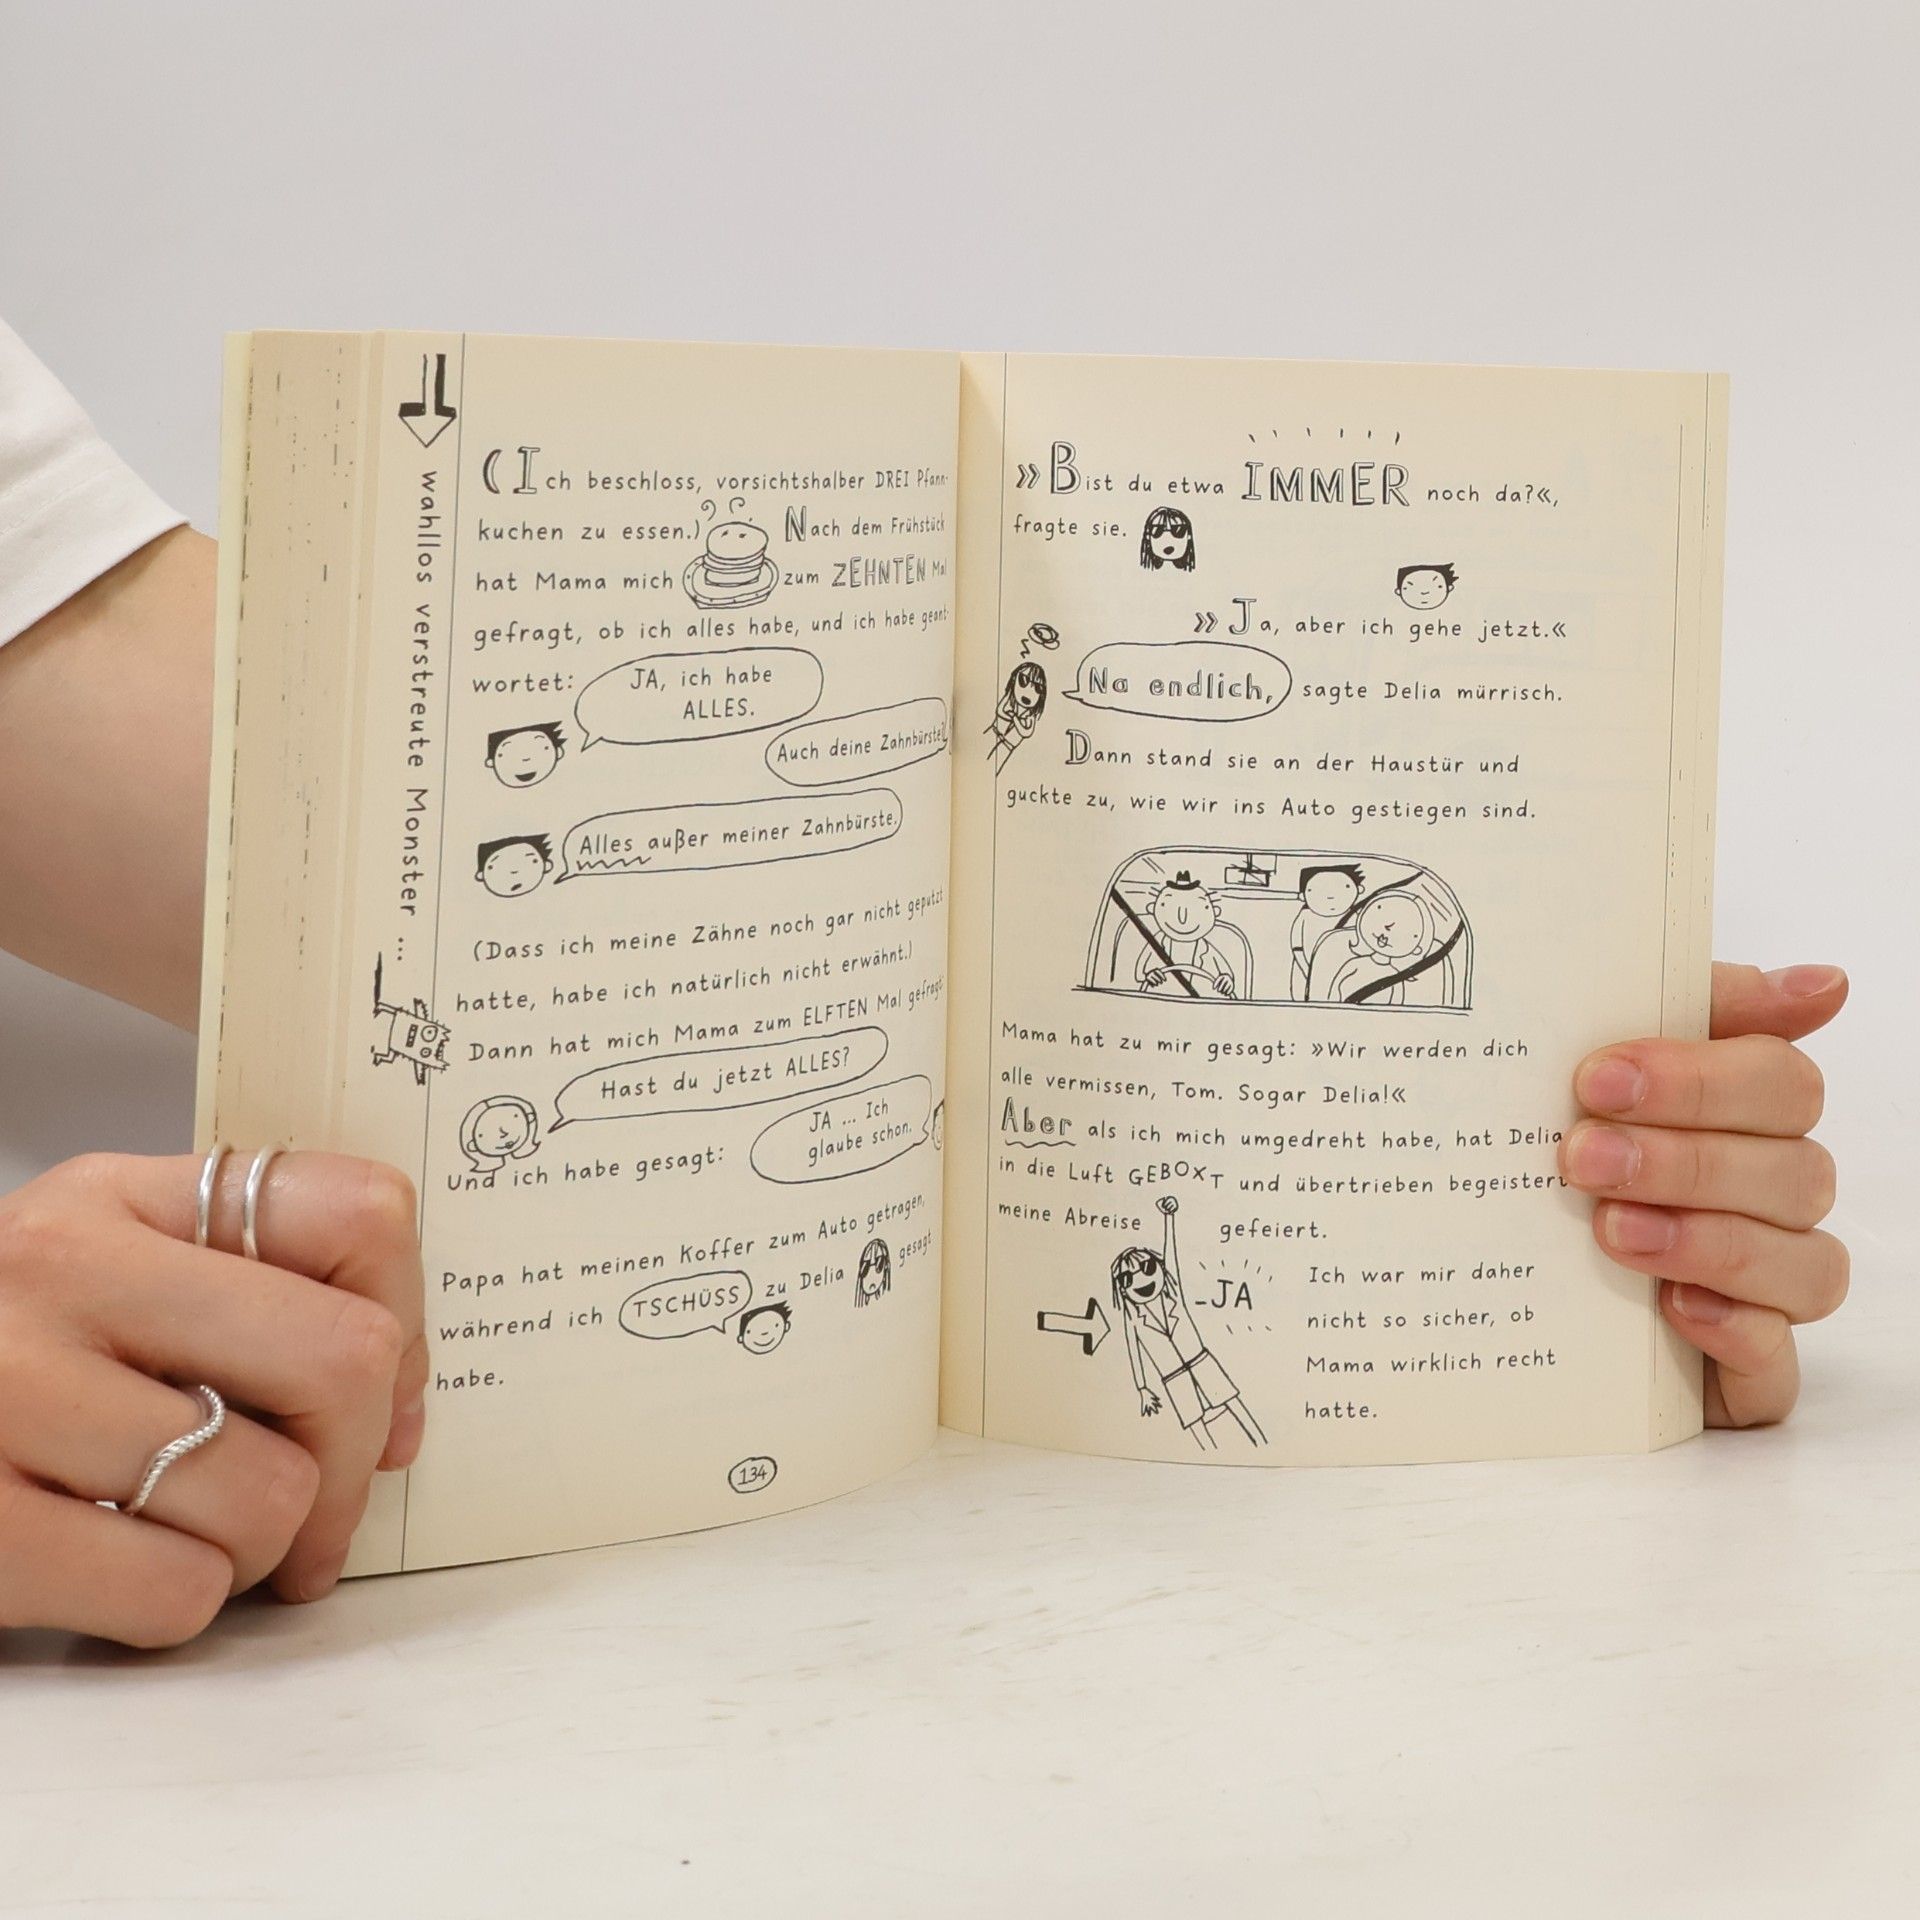 wahllos verstreute Monster ...
(Ich beschloss, vorsichtshalber DREI Pfann-
kuchen zu essen.) Nach dem Frühstück
hat Mama mich zum ZEHNTEN Mal
gefragt, ob ich alles habe, und ich habe geant-
wortet:
JA, ich habe
ALLES.
Auch deine Zahnbürste?
Alles außer meiner Zahnbürste.
(Dass ich meine Zähne noch gar nicht geputzt
hatte, habe ich natürlich nicht erwähnt.)
Dann hat mich Mama zum ELFTEN Mal gefragt:
Hast du jetzt ALLES?
JA ... Ich
glaube schon.
Und ich habe gesagt:
Papa hat meinen Koffer zum Auto getragen,
während ich TSCHÜSS zu Delia gesagt
habe.
134
»Bist du etwa IMMER noch da?«,
fragte sie.
»Ja, aber ich gehe jetzt.«
Na endlich, sagte Delia mürrisch.
Dann stand sie an der Haustür und
guckte zu, wie wir ins Auto gestiegen sind.
Mama hat zu mir gesagt: »Wir werden dich
alle vermissen, Tom. Sogar Delia!«
Aber als ich mich umgedreht habe, hat Delia
in die Luft GEBOXT und übertrieben begeistert
meine Abreise gefeiert.
JA
Ich war mir daher
nicht so sicher, ob
Mama wirklich recht
hatte.